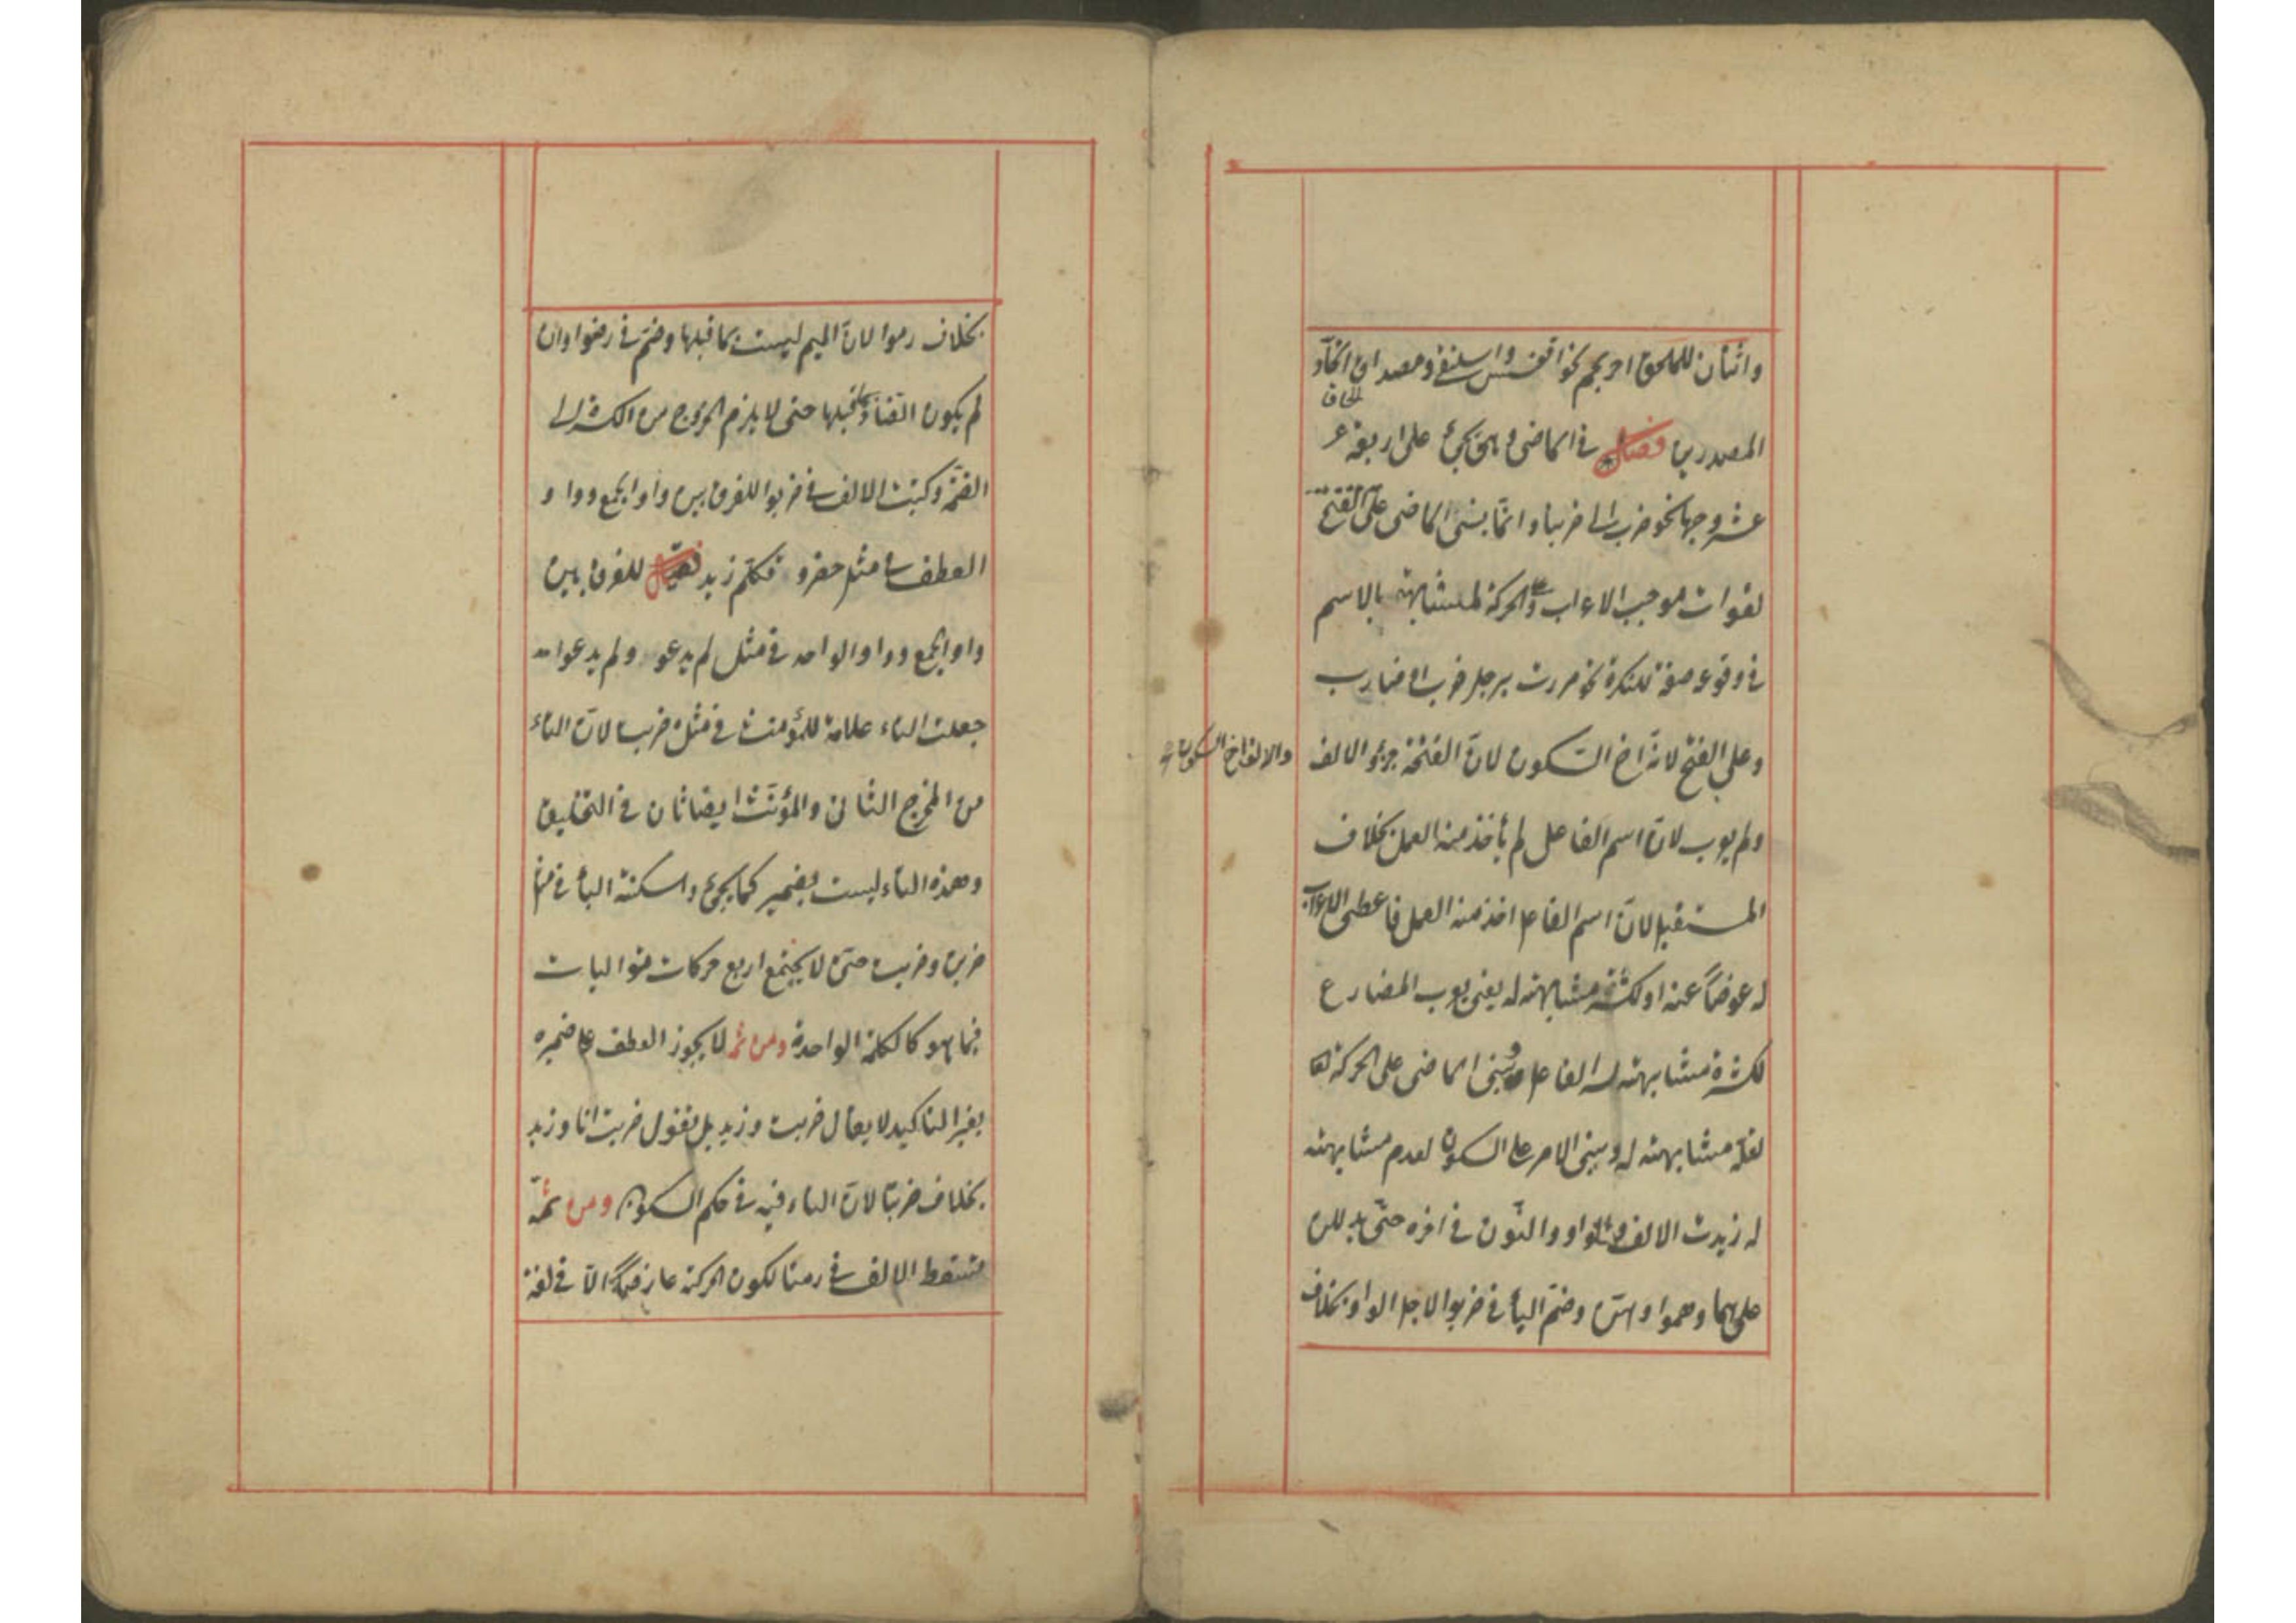 واثنان للملحق احرنجم نحو اقعنسس واسلنقى ومصداق الحاق اتحاد
المصدرين فصل فى الماضى وهو يجئ على اربعة عـ
عشر وجها نحو ضرب الى ضربنا وانما بنى الماضى على الفتح
لفوات موجب الاعراب وعلى الحركة لمشابهته بالاسم
فى وقوعه صفة للنكرة نحو مررت برجل ضرب او ضارب
وعلى الفتح لانه اخ السكون لان الفتحة جزؤ الالف
والالف اخ السكون
ولم يعرب لان اسم الفاعل لم يأخذ منه العمل بخلاف
المستقبل لان اسم الفاعل اخذ منه العمل فاعطى الاعراب
له عوضاً عنه او لكثرة مشابهته له يعنى يعرب المضارع
لكثرة مشابهته له الفاعل وبنى الماضى على الحركة
لقلة مشابهته له وبنى الامر على السكون لعدم مشابهته
له زيدت الالف والواو والنون فى اخره حتى يدللن
على هما وهموا وهنّ وضم الباء فى ضربوا لاجل الواو بخلاف
بخلاف رموا لان الميم ليست بما قبلها وضم فى رضوا وان
لم يكون الضاد بما قبلها حتى لا يلزم الخروج من الكسرة الى
الضمة وكتبت الالف فى ضربوا للفرق بين واو الجمع وواو
العطف فى مثل حضر و فكلم زيد فصل للفرق بين
واو الجمع وواو الواحد فى مثل لم يدعو ولم يدعوا
جعلت التاء علامة للمؤمنث فى مثل ضربت لان التاء
من المخرج الثانى والمؤنث ايضا ثان فى التخليق
وهذه التاء ليست بضمير كما يجئ واسكنة الباء فى مثل
ضربن وضربت حتى لا يجتمع اربع حركات متواليات
فيما هو كالكلمة الواحدة ومن ثم لا يجوز العطف على ضميره
بغير التاكيد لا يقال ضربت وزيد بل تقول ضربت انا وزيد
بخلاف ضربتا لان التاء فيه فى حكم السكون ومن ثمة
تسقط الالف فى رمتا لكون الحركة عارضة الا فى لغة